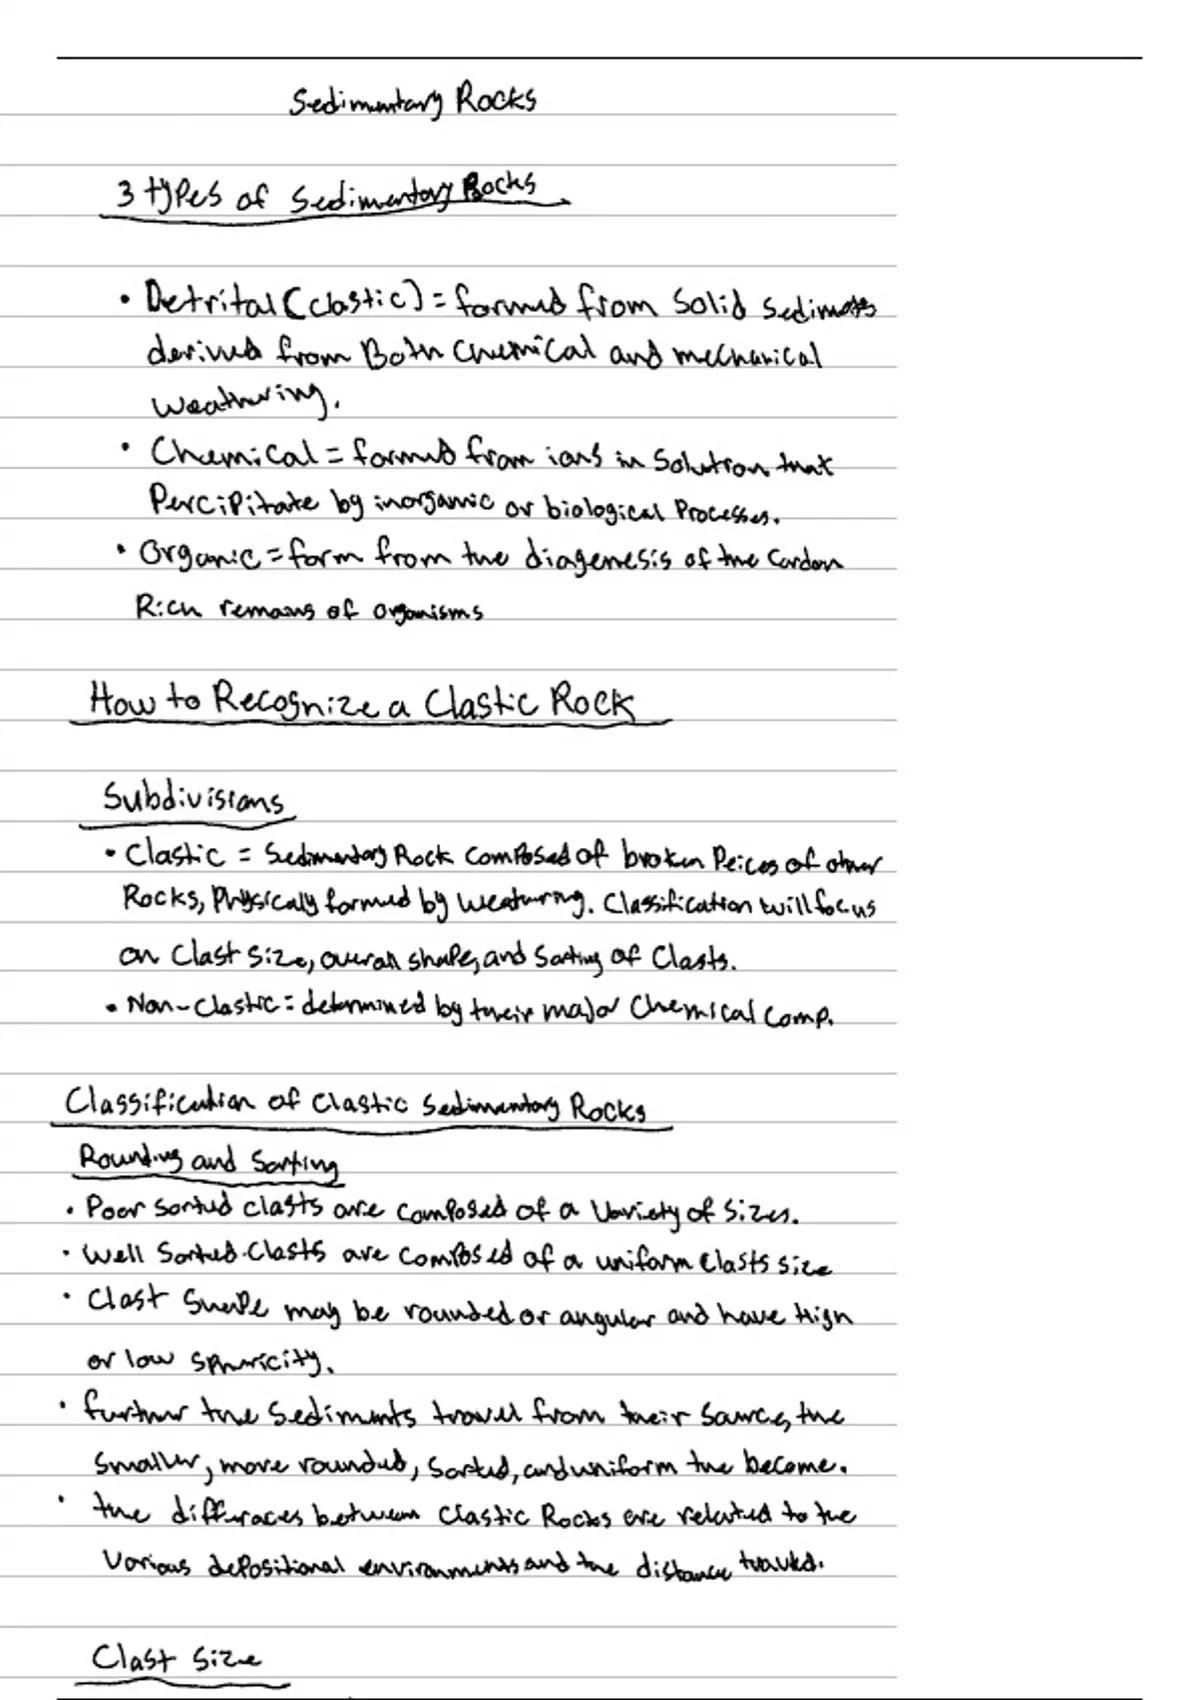 Sedimentary Rocks
3 types of Sedimentary Rocks
• Detrital (clastic) = formed from Solid Sediments
derived from Both Chemical and mechanical
weathering.
• Chemical = formed from ions in Solution that
Percipitate by inorganic or biological Processes.
• Organic = form from the diagenesis of the Carbon
Rich remains of organisms
How to Recognize a Clastic Rock
Subdivisions
• Clastic = Sedimentary Rock Composed of broken Peices of other
Rocks, Physicaly formed by weathering. Classification will focus
on Clast Size, overall shape, and Sorting of Clasts.
• Non-Clastic = determined by their major Chemical Comp.
Classification of Clastic Sedimentary Rocks
Rounding and Sorting
• Poor Sorted clasts are composed of a Variety of Sizes.
• Well Sorted Clasts are composed of a uniform Clasts size
• Clast Shape may be rounded or angular and have High
or low sphericity.
• further the Sediments travel from their Source, the
Smaller, more rounded, Sorted, and uniform the become.
• the differaces between Clastic Rocks are related to the
Various depositional environments and the distance traveled.
Clast Size